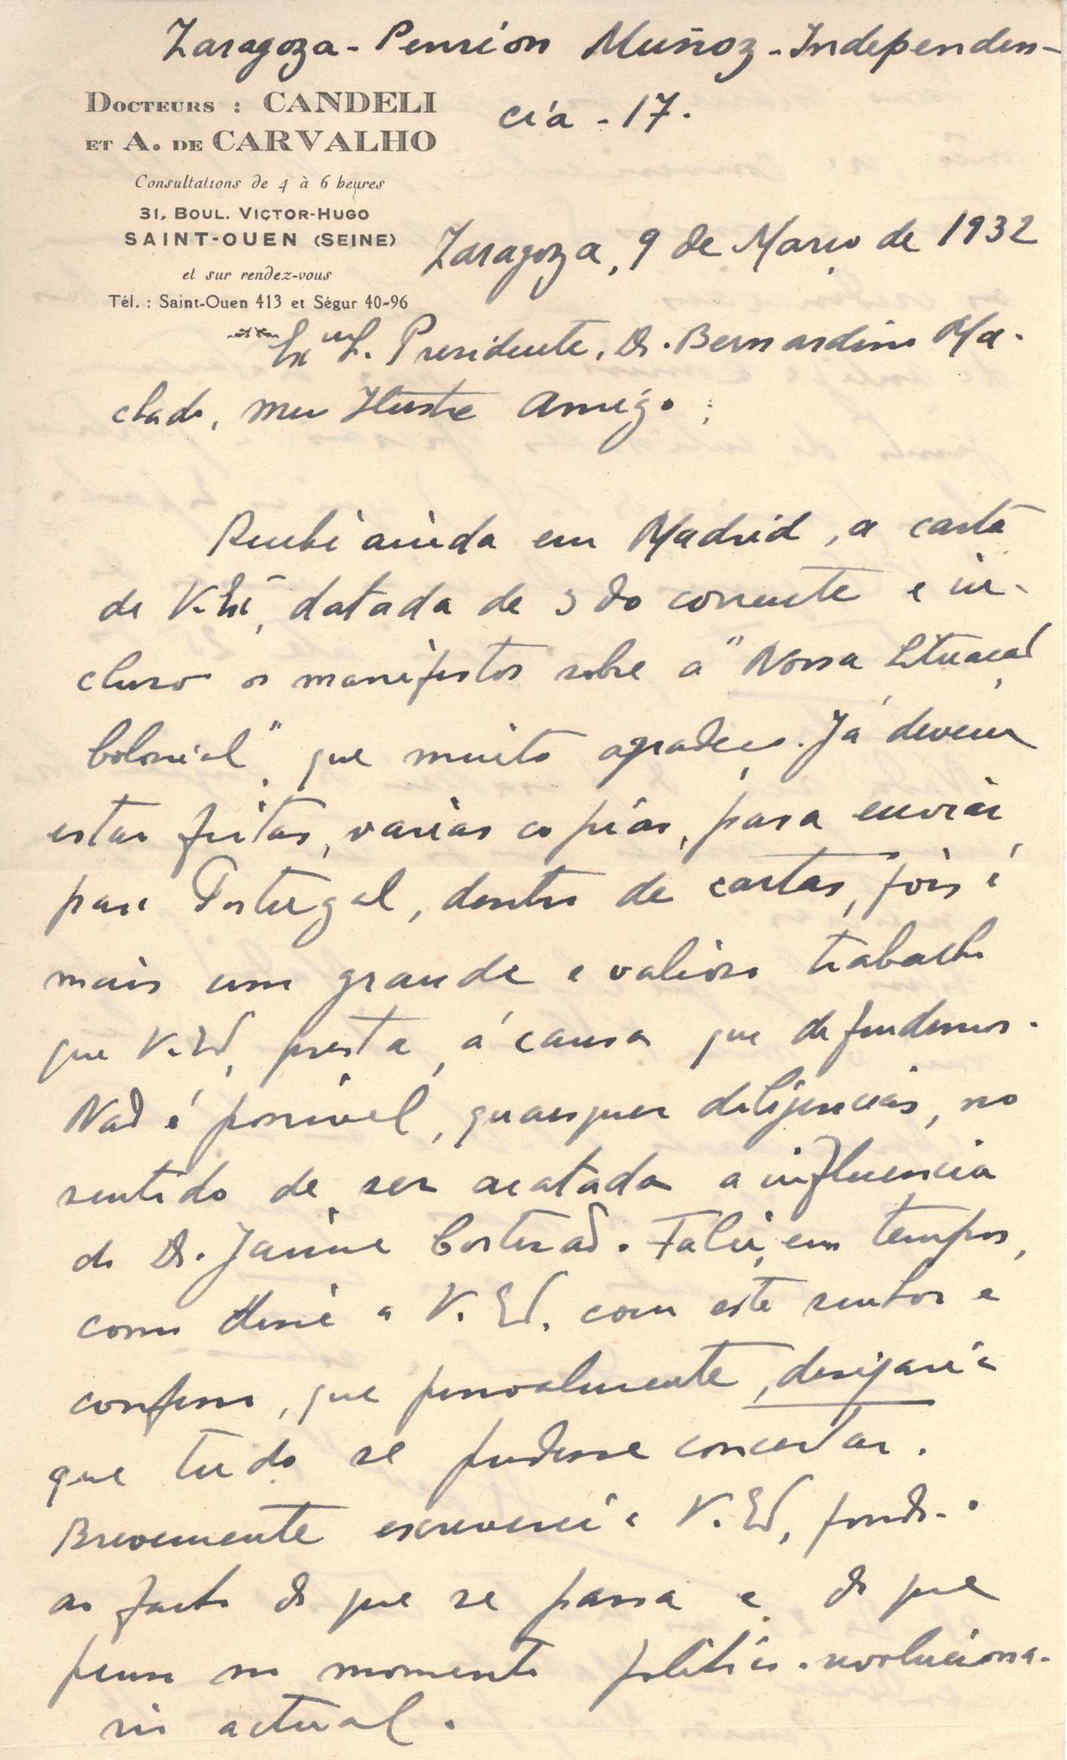 Zaragoza - Pension Muñoz - Independen-
cia - 17.
DOCTEURS : CANDELI
ET A. DE CARVALHO
Consultations de 4 à 6 heures
31, BOUL. VICTOR-HUGO
SAINT-OUEN (SEINE)
et sur rendez-vous
Tél. : Saint-Ouen 413 et Ségur 40-96
Zaragoza, 9 de Março de 1932
Exmo Sr. Presidente, Dr. Bernardino Ma-
chado, meu Ilustre Amigo:
Recebi ainda em Madrid, a carta
de V. Exª, datada de 3 do corrente e in-
cluso os manifestos sobre a "Nossa Situação
Colonial", que muito agradeço. Já devem
estar feitas, varias copias, para enviar
para Portugal, dentro de cartas, pois é
mais um grande e valioso trabalho
que V. Exª, presta, á causa que defendemos.
Não é possivel, quaisquer diligencias, no
sentido de ser acatada a influencia
do Dr. Jaime Cortezão. Falei, em tempos,
como disse a V. Exª, com este senhor e
confesso, que pessoalmente, desejaria
que tudo se pudesse concertar.
Brevemente escreverei a V. Exª, pondo-o
ao facto do que se passa e do que
penso no momento politico-revoluciona-
rio actual.